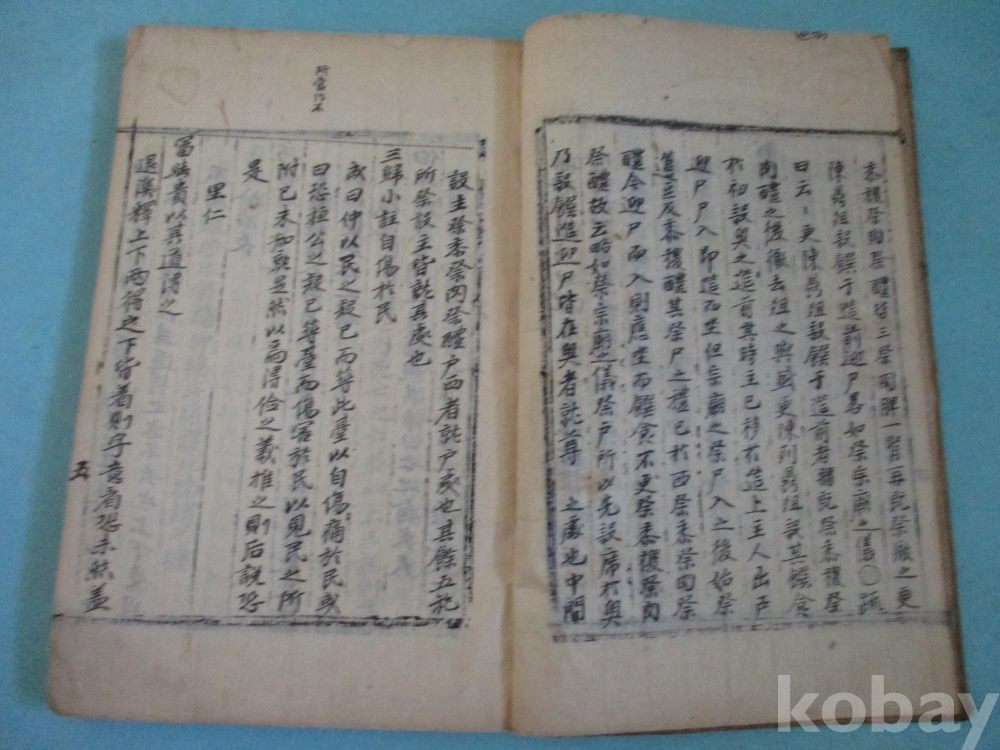 黍稷祭肉祭醴皆三祭
陳鼎俎設饌于筵前迎尸畧如祭宗廟之儀○疏
曰云々更陳鼎俎設饌于筵前者謂既祭黍稷祭
肉醴之後徹去俎之與盛更陳列鼎俎設其饌食
於初設奧之筵前其時主已移於筵上主人出戶
迎尸尸入即筵而坐但宗廟之祭尸入之後始祭
邊豆及黍稷醴其祭尸之禮已於西祭黍祭肉祭
醴今迎尸而入則應坐而饌食不更祭黍稷祭肉
祭醴故云畧如祭宗廟之儀祭戶所以先設席於奧
乃設饌筵迎尸時在奧者就尊 之處也中間
設主祭黍祭肉祭醴戶西者就戶處也其餘五祀
所祭設主皆就其處也
三歸小註自傷於民
或曰仲以民之 已而 此 以自傷痛於民或
曰恐桓公之 已 而傷害於民以見民之所
附已未知 是然以 得儉之義推之則后說恐
是
里仁
富與貴以其道得之
退溪釋上下兩得之下皆着則字意 恐未然盖
五
所當作不
kobay